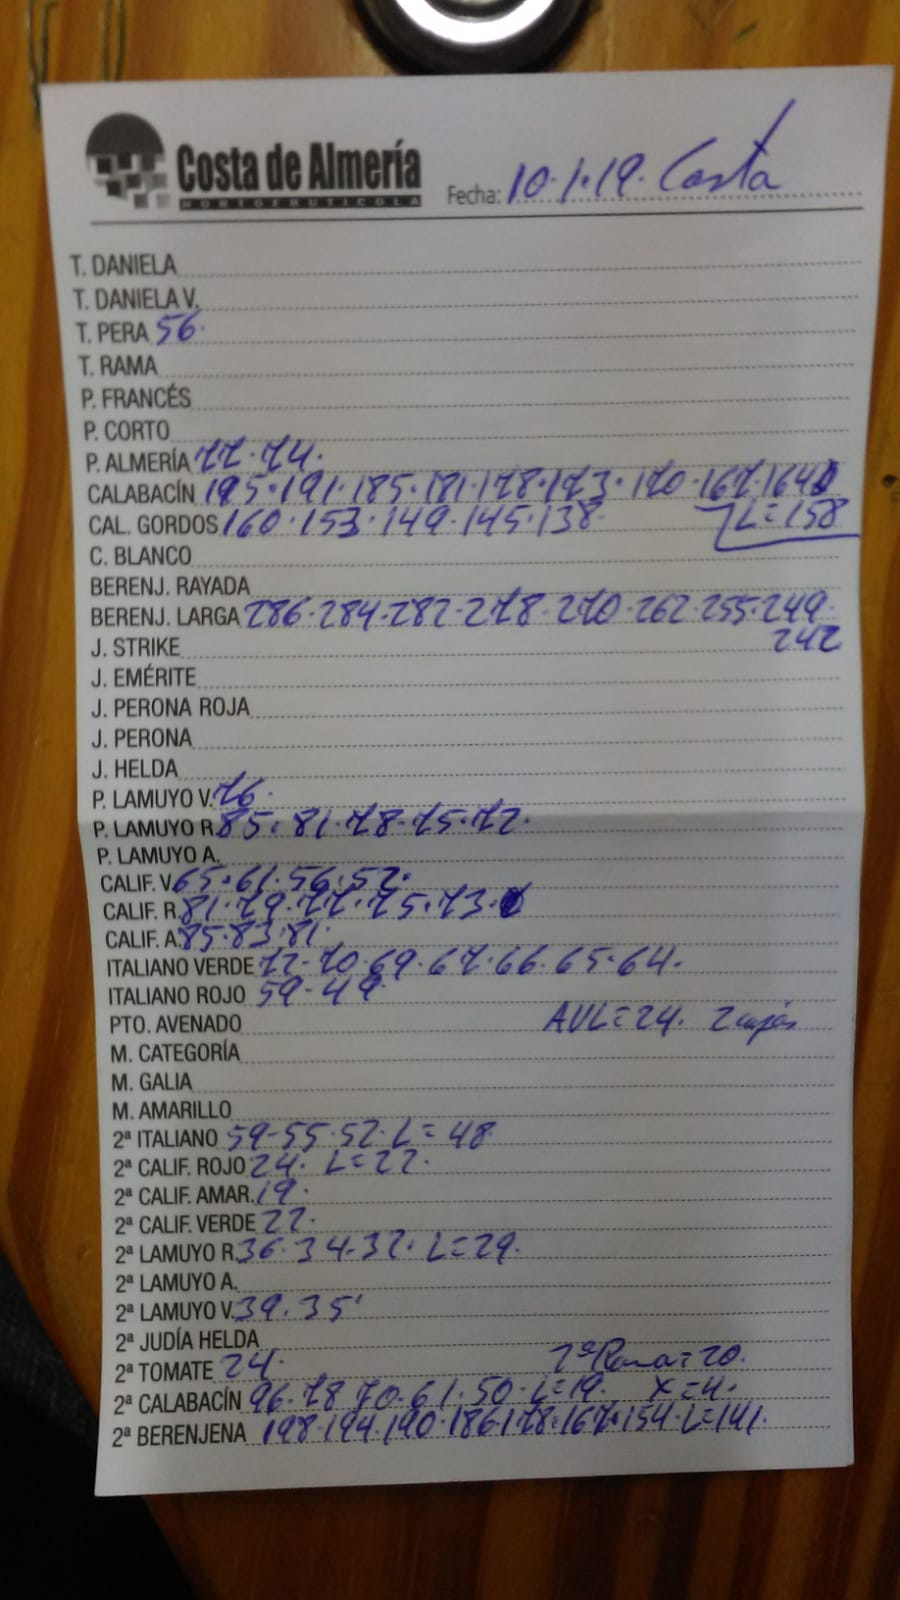 Costa de Almería
HORTOFRUTICOLA
Fecha: 10.1.19. Costa
T. DANIELA
T. DANIELA V.
T. PERA 56.
T. RAMA
P. FRANCÉS
P. CORTO
P. ALMERÍA 77.74.
CALABACÍN 195.191.185.181.178.173.170.167.164
CAL. GORDOS 160.153.149.145.138. L=158
C. BLANCO
BERENJ. RAYADA
BERENJ. LARGA 286-284-282-278-270-262-255-249.
J. STRIKE 242
J. EMÉRITE
J. PERONA ROJA
J. PERONA
J. HELDA
P. LAMUYO V. 76.
P. LAMUYO R. 85.81.78.75.72.
P. LAMUYO A.
CALIF. V. 65.61.56.52.
CALIF. R. 81.79.77.75.73.
CALIF. A. 85.83.81.
ITALIANO VERDE 72-70.69.67.66.65.64.
ITALIANO ROJO 59-49.
PTO. AVENADO AVL=24. 2 cajas
M. CATEGORÍA
M. GALIA
M. AMARILLO
2ª ITALIANO 59-55-52. L=48.
2ª CALIF. ROJO 24. L=22.
2ª CALIF. AMAR. 19.
2ª CALIF. VERDE 22.
2ª LAMUYO R. 36.34-32. L=29.
2ª LAMUYO A.
2ª LAMUYO V. 39.35
2ª JUDÍA HELDA
2ª TOMATE 24. 2ª Rama=20.
2ª CALABACÍN 96.78 70.61.50. L=19. X=4.
2ª BERENJENA 198.194.190.186.178.167.154. L=141.